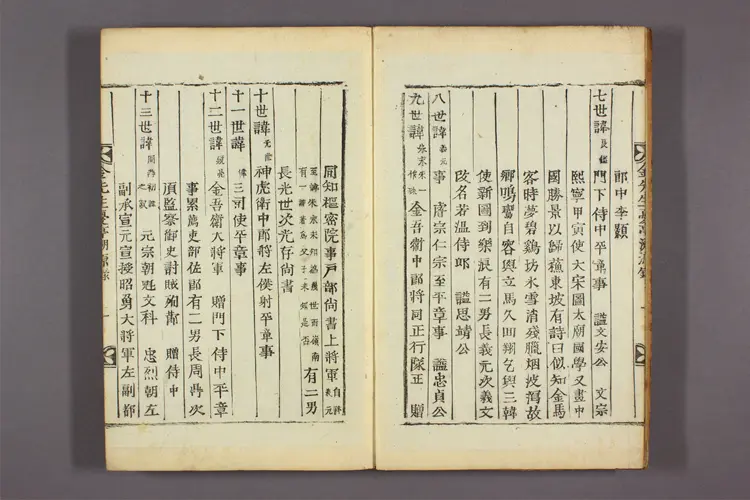 郎中李顥
七世諱良鑑門下侍中平章事 謚文安公 文宗
熙寧甲寅使大宋圖太廟國學又畫中
國勝景以歸蘇東坡有詩曰似知金馬
客時夢碧鷄坊氷雪消殘臘烟波瀉故
鄉鳴鸞自容與立馬久回翔乞與三韓
使新圖到樂浪有二男長義元次義文
改名若溫侍郎 謚思靖公
八世諱義元事 睿宗仁宗平章事 謚忠貞公
九世諱 金吾衛中郎將同正行隊正 贈
同知樞密院事戶部尚書上將軍
有二男
長光世次光存尚書
十世諱 神虎衛中郎將左僕射平章事
十一世諱 三司使平章事
十二世諱 金吾衛大將軍 贈門下侍中平章
事累薦吏部佐郎有二男長周鼎次
頂監察御史討賊殉節 贈侍中
十三世諱周鼎初諱之叔 元宗朝魁文科 忠烈朝左
副承宣元宣授昭勇大將軍左副都